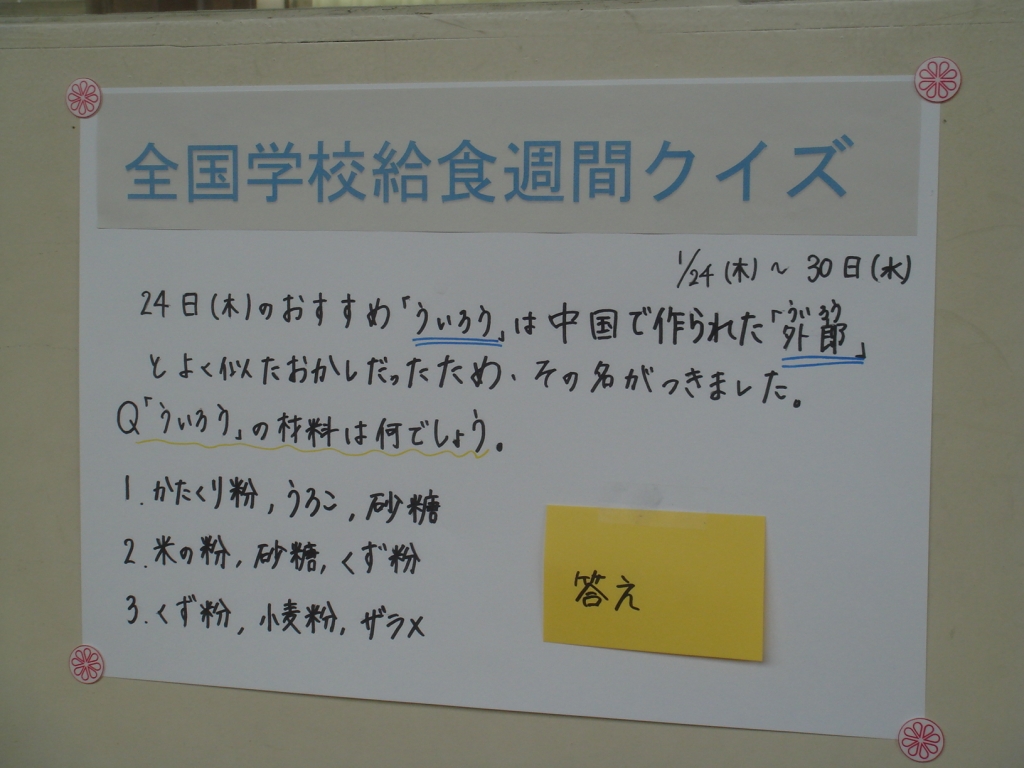 全国学校給食週間クイズ
1/24(木)~30日(水)
24日(木)のおすすめ「ういろう」は中国で作られた「外郎」
ういろう
とよく似たおかしだったため、その名がつきました。
Q「ういろう」の材料は何でしょう。
1.かたくり粉,うろこ,砂糖
2.米の粉,砂糖,くず粉
3.くず粉,小麦粉,ザラメ
答え